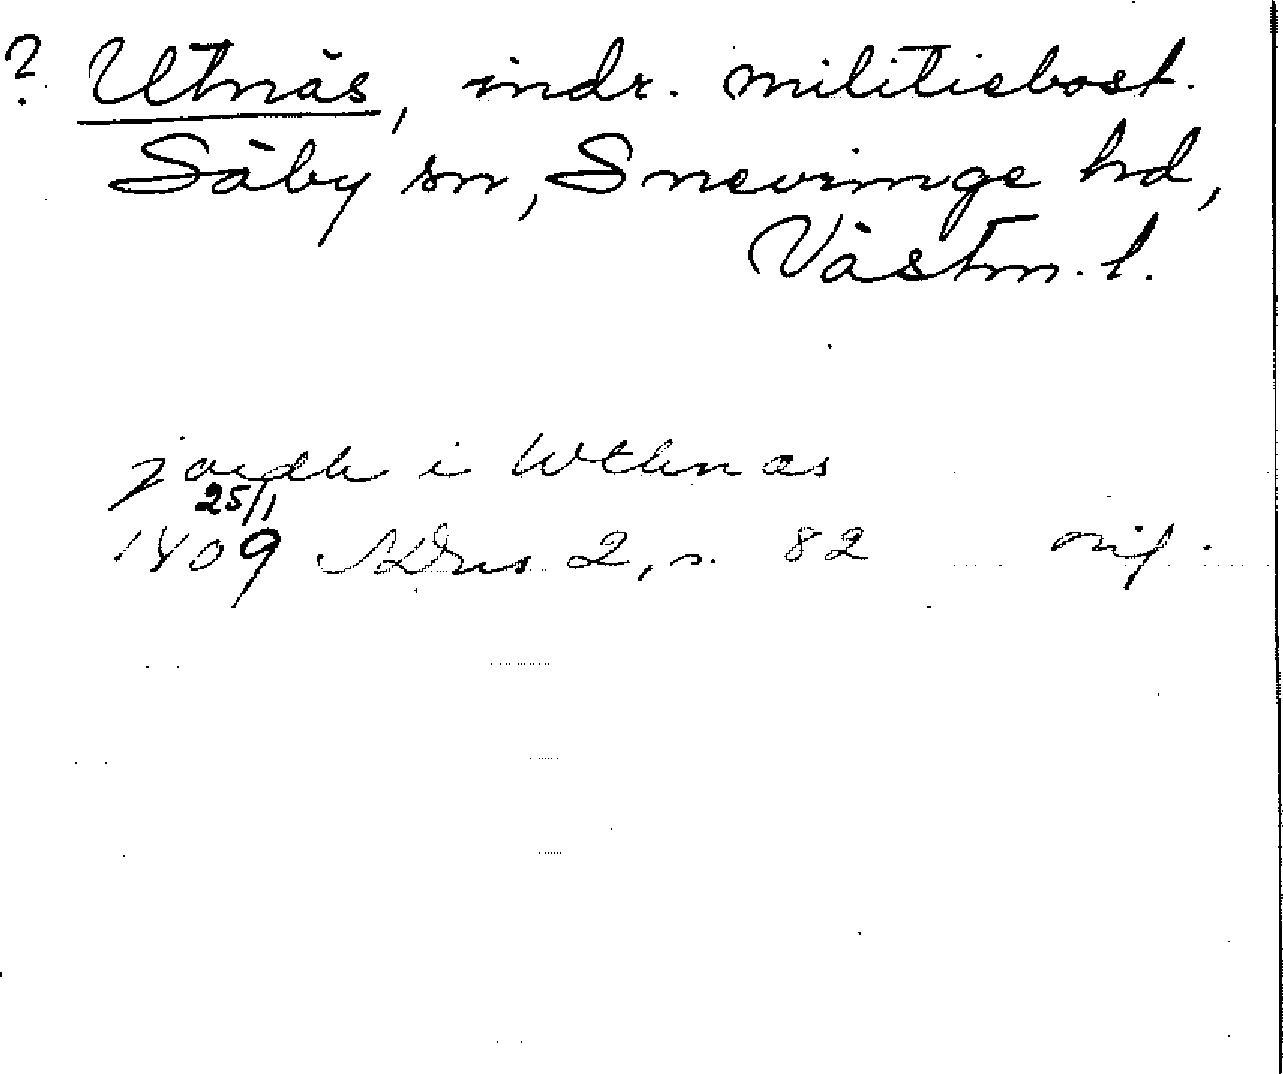 ? Utnäs, indr. militiebost.
Säby sn, Snevringe hd,
Västm. l.
jordh i Wthnas
25/1
1409 SDns 2, s. 82 orig.